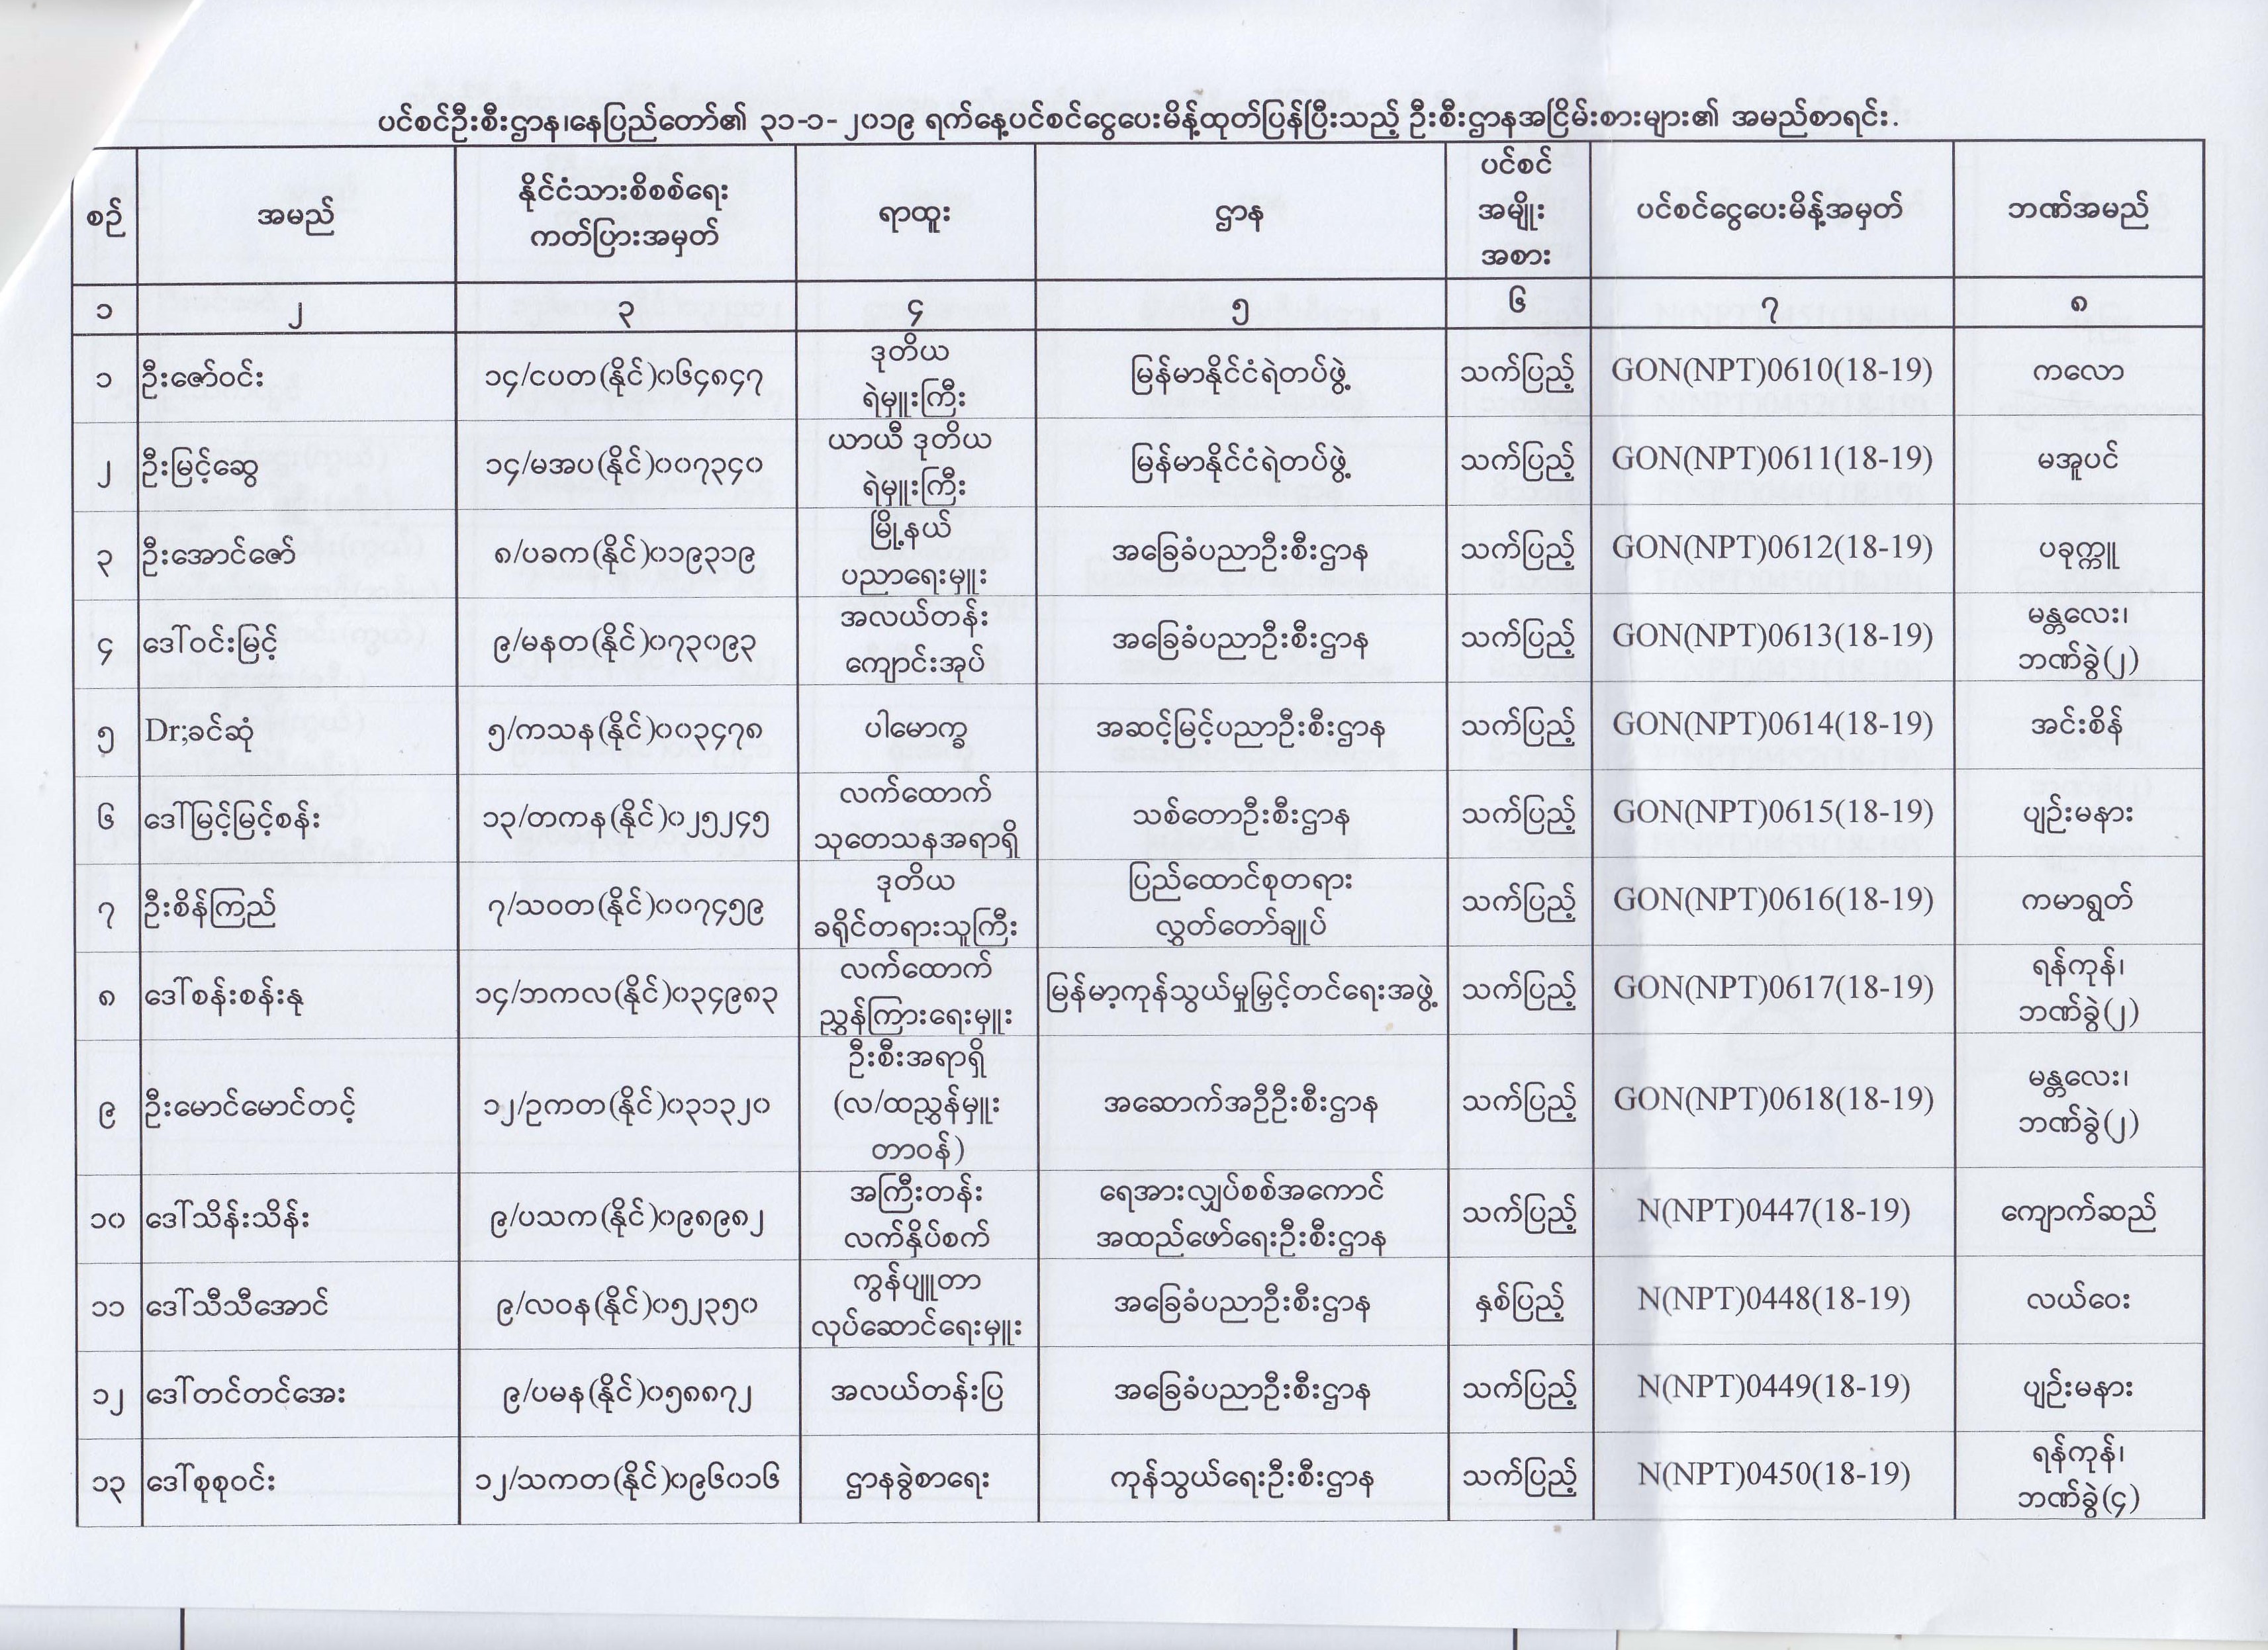 ပင်စင်ဦးစီးဌာန၊နေပြည်တော်၏ ၃၁-၁-၂၀၁၉ ရက်နေ့ပင်စင်ငွေပေးမိန့်ထုတ်ပြန်ပြီးသည့် ဦးစီးဌာနအငြိမ်းစားများ၏ အမည်စာရင်း.
စဉ် အမည် နိုင်ငံသားစိစစ်ရေး ကတ်ပြားအမှတ် ရာထူး ဌာန ပင်စင် အမျိုး အစား ပင်စင်ငွေပေးမိန့်အမှတ် ဘဏ်အမည်
၁ ၂ ၃ ၄ ၅ ၆ ၇ ၈
၁ ဦးဇော်ဝင်း ၁၄/ငပတ(နိုင်)၀၆၄၈၄၇ ဒုတိယ ရဲမှူးကြီး မြန်မာနိုင်ငံရဲတပ်ဖွဲ့ သက်ပြည့် GON(NPT)0610(18-19) ကလော
၂ ဦးမြင့်ဆွေ ၁၄/မအပ(နိုင်)၀၀၇၃၄၀ ယာယီ ဒုတိယ ရဲမှူးကြီး မြန်မာနိုင်ငံရဲတပ်ဖွဲ့ သက်ပြည့် GON(NPT)0611(18-19) မအူပင်
၃ ဦးအောင်ဇော် ၈/ပခက(နိုင်)၀၁၉၃၁၉ မြို့နယ် ပညာရေးမှူး အခြေခံပညာဦးစီးဌာန သက်ပြည့် GON(NPT)0612(18-19) ပခုက္ကူ
၄ ဒေါ်ဝင်းမြင့် ၉/မနတ(နိုင်)၀၇၃၀၉၃ အလယ်တန်း ကျောင်းအုပ် အခြေခံပညာဦးစီးဌာန သက်ပြည့် GON(NPT)0613(18-19) မန္တလေး၊ ဘဏ်ခွဲ(၂)
၅ Dr;ခင်ဆုံ ၅/ကသန(နိုင်)၀၀၃၄၇၈ ပါမောက္ခ အဆင့်မြင့်ပညာဦးစီးဌာန သက်ပြည့် GON(NPT)0614(18-19) အင်းစိန်
၆ ဒေါ်မြင့်မြင့်စန်း ၁၃/တကန(နိုင်)၀၂၅၂၄၅ လက်ထောက် သုတေသနအရာရှိ သစ်တောဦးစီးဌာန သက်ပြည့် GON(NPT)0615(18-19) ပျဉ်းမနား
၇ ဦးစိန်ကြည် ၇/သဝတ(နိုင်)၀၀၇၄၅၉ ဒုတိယ ခရိုင်တရားသူကြီး ပြည်ထောင်စုတရား လွှတ်တော်ချုပ် သက်ပြည့် GON(NPT)0616(18-19) ကမာရွတ်
၈ ဒေါ်စန်းစန်းနု ၁၄/ဘကလ(နိုင်)၀၃၄၉၈၃ လက်ထောက် ညွှန်ကြားရေးမှူး မြန်မာ့ကုန်သွယ်မှုမြှင့်တင်ရေးအဖွဲ့ သက်ပြည့် GON(NPT)0617(18-19) ရန်ကုန်၊ ဘဏ်ခွဲ(၂)
၉ ဦးမောင်မောင်တင့် ၁၂/ဥကတ(နိုင်)၀၃၁၃၂၀ ဦးစီးအရာရှိ (လ/ထညွှန်မှူး တာဝန်) အဆောက်အဦဦးစီးဌာန သက်ပြည့် GON(NPT)0618(18-19) မန္တလေး၊ ဘဏ်ခွဲ(၂)
၁၀ ဒေါ်သိန်းသိန်း ၉/ပသက(နိုင်)၀၉၈၉၈၂ အကြီးတန်း လက်နှိပ်စက် ရေအားလျှပ်စစ်အကောင် အထည်ဖော်ရေးဦးစီးဌာန သက်ပြည့် N(NPT)0447(18-19) ကျောက်ဆည်
၁၁ ဒေါ်သီသီအောင် ၉/လဝန(နိုင်)၀၅၂၃၅၀ ကွန်ပျူတာ လုပ်ဆောင်ရေးမှူး အခြေခံပညာဦးစီးဌာန နှစ်ပြည့် N(NPT)0448(18-19) လယ်ဝေး
၁၂ ဒေါ်တင်တင်အေး ၉/ပမန(နိုင်)၀၅၈၈၇၂ အလယ်တန်းပြ အခြေခံပညာဦးစီးဌာန သက်ပြည့် N(NPT)0449(18-19) ပျဉ်းမနား
၁၃ ဒေါ်စုစုဝင်း ၁၂/သကတ(နိုင်)၀၉၆၀၁၆ ဌာနခွဲစာရေး ကုန်သွယ်ရေးဦးစီးဌာန သက်ပြည့် N(NPT)0450(18-19) ရန်ကုန်၊ ဘဏ်ခွဲ(၄)